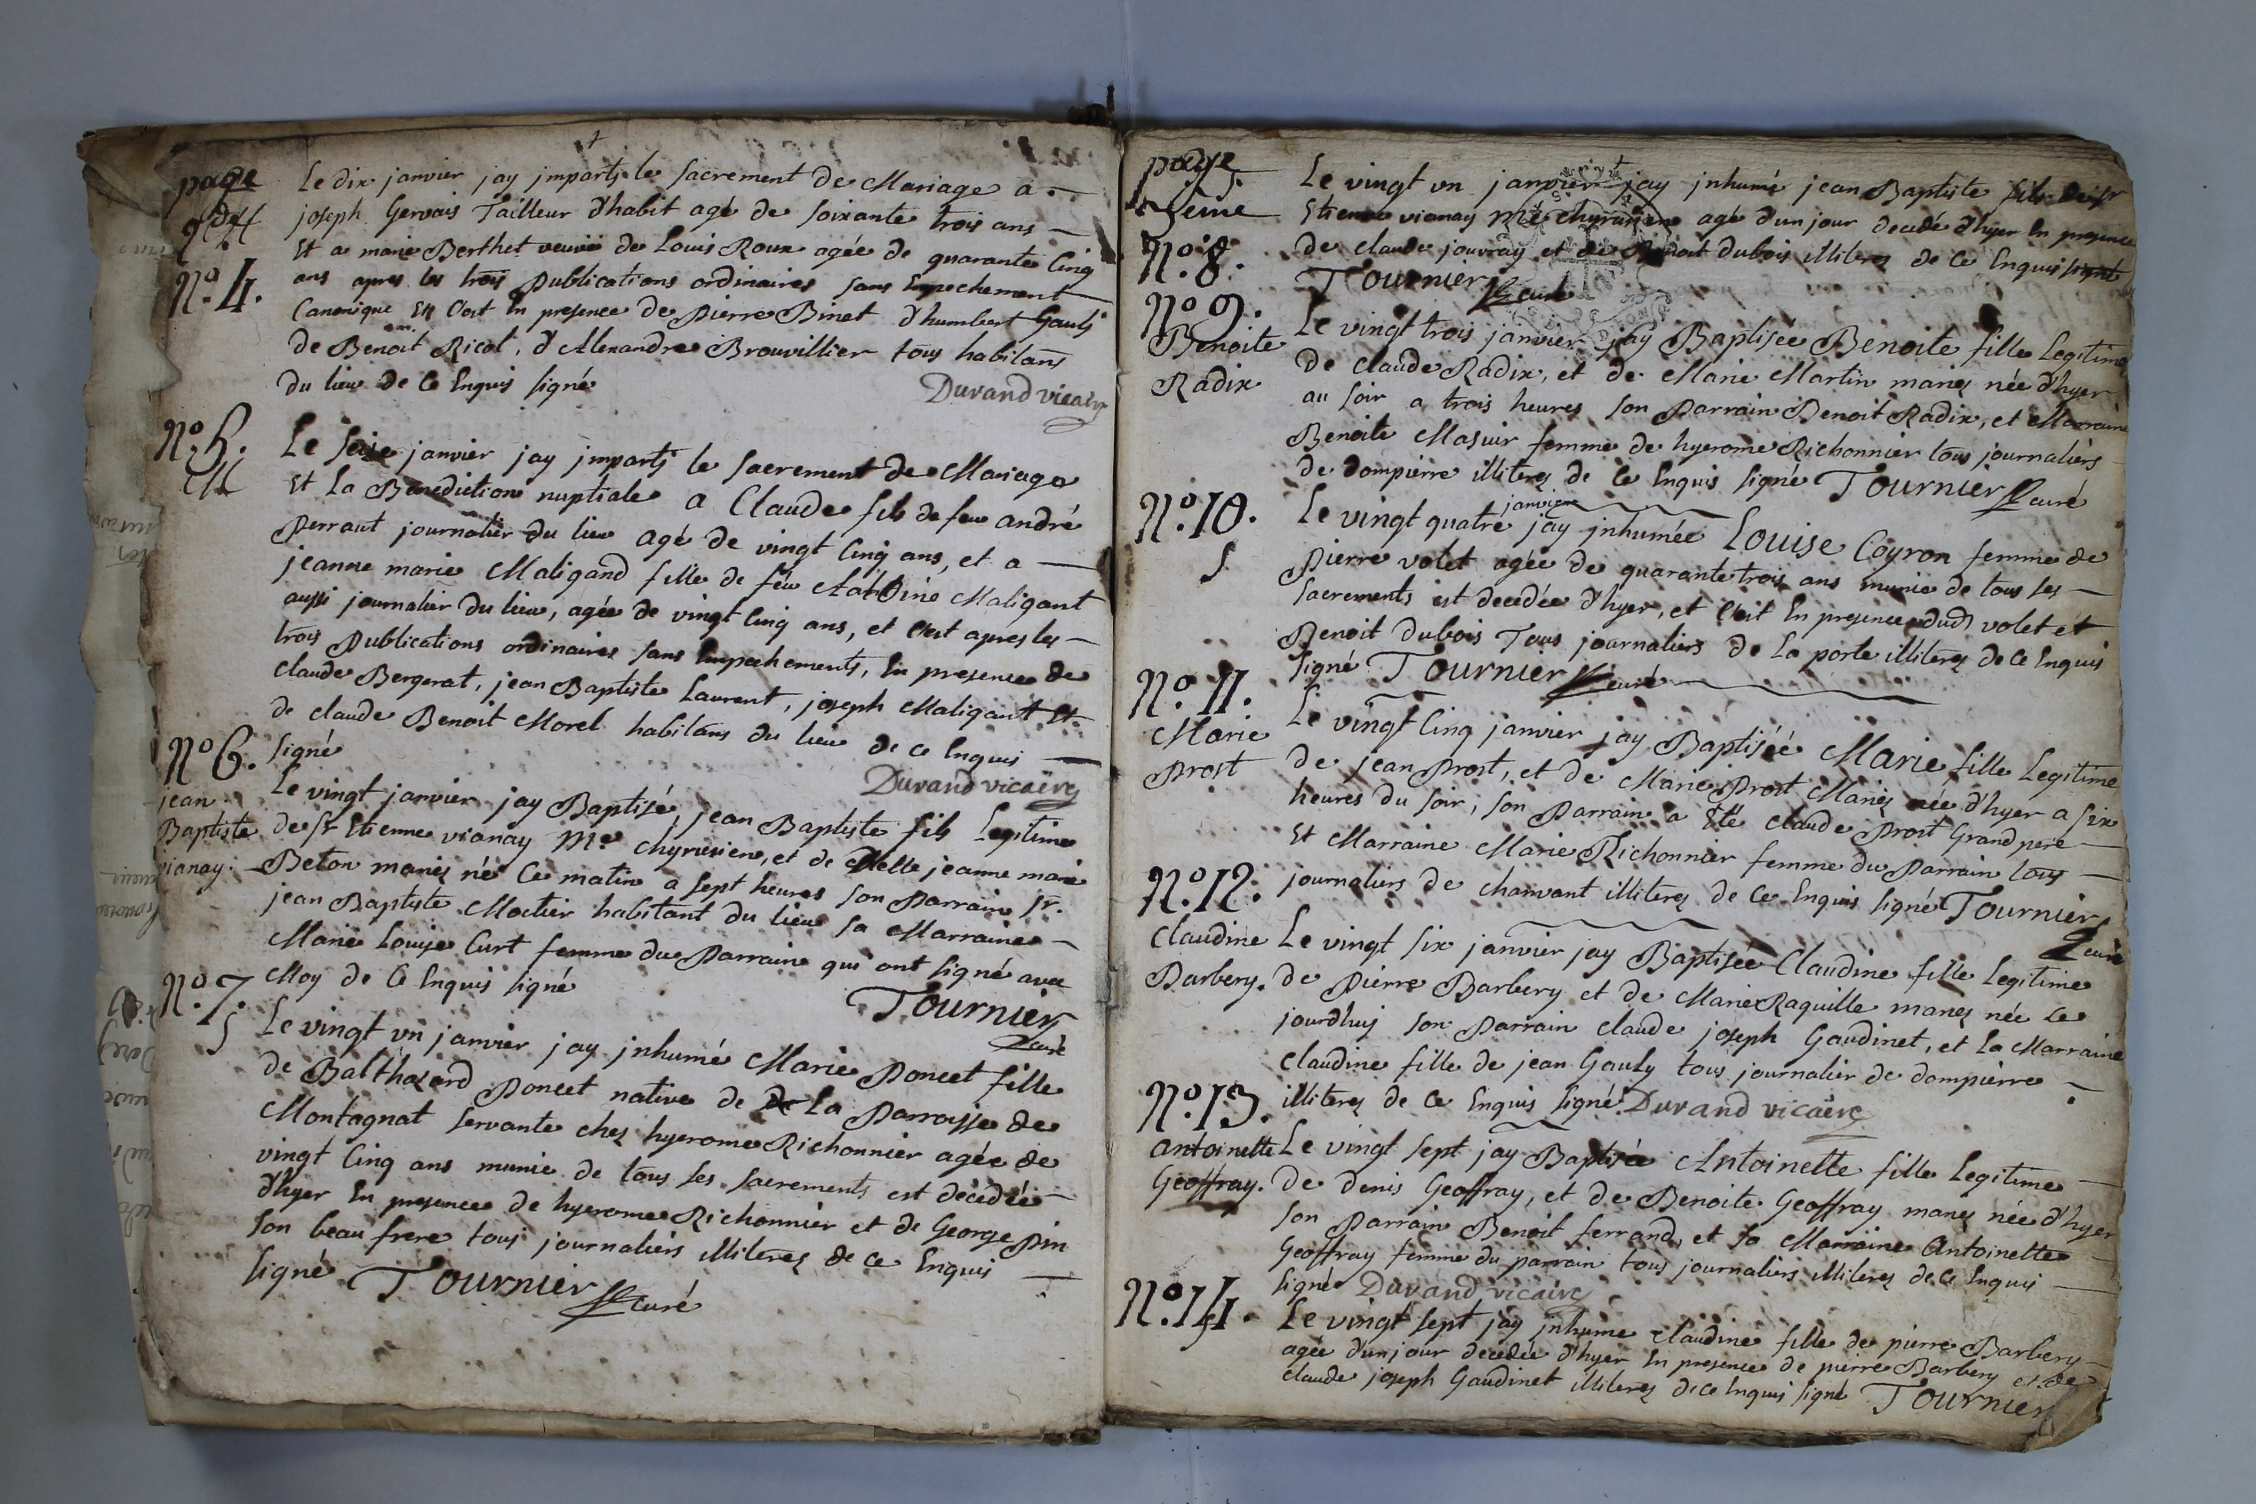 page
4
Nº 4.
Le dix janvier jay imparti le sacrement de Mariage a
joseph Gervais Tailleur d'habit agé de soixante trois ans
Et a marie Berthet veuve de Louis Roux agée de quarante Cinq
ans apres les trois publications ordinaires sans Empechement
Canonique Et C'est En presence de Pierre Binet d'humbert Gauly
de Benoit Ricol, d'Alexandre Brouvillier tous habitans
du lieu de Ce Enquis signé
Durand vicaire
Nº 5.
M
Le seise janvier jay imparti le sacrement de Mariage
Et La Benediction nuptiale a Claude fils de feu andré
perraut journalier du lieu agé de vingt Cinq ans, et a
jeanne marie Maligand fille de feu Maligant
aussi journalier du lieu, agée de vingt Cinq ans, et C'est apres les
trois Publications ordinaires sans Empechements, En presence de
claude Bergerat, jean Baptiste Laurent, joseph Maligant Et
de claude Benoit Morel habitans du lieu de Ce Enquis
signé
Durand vicaire
Nº 6.
jean
Baptiste
vianay.
Le vingt janvier jay Baptisé jean Baptiste fils Legitime
de sr Etienne vianay Me chyrurien, et de Delle jeanne marie
Beton mariez né Ce matin a sept heures son Parrain sr.
jean Baptiste Moctier habitant du lieu sa Marraine
Marie Louise Curt femme du Parrain qui ont signé avec
Moy de Ce Enquis signé
Tournier
curé
Nº 7.
S
Le vingt vn janvier jay jnhumé Marie Poncet fille
de Balthazard Poncet native de La Parroisse de
Montagnat servante chez hyerome Richonnier agée de
vingt Cinq ans munie de tous les sacrements est decedée
d'hyer En presence de hyerome Richonnier et de George Pin
son beau frere tous journaliers illiterez de Ce Enquis
signé Tournier curé
page
5eme
Nº 8.
Le vingt vn janvier jay jnhumé jean Baptiste fils de sr
Etienne vianay Me chyrurien agé d'un jour decedé d'hyer En presence
de claude jouvray et de Benoit Dubois illiterez de Ce Enquis signé
Tournier curé
Nº 9.
Benoite
Radix
Le vingt trois janvier jay Baptisée Benoite fille Legitime
de Claude Radix, et de Marie Martin mariez née d'hyer
au soir a trois heures son Parrain Benoit Radix, et Marraine
Benoite Masuir femme de hyerome Richonnier tous journaliers
de Dompierre illiterez de Ce Enquis signé Tournier curé
Nº 10.
S
janvier
Le vingt quatre jay jnhumée Louise Coyron femme de
Pierre volet agée de quarante trois ans munie de tous les
sacrements est decedée d'hyer, et C'est En presence dud volet et
Benoit Dubois Tous journaliers de La porte illiterez de Ce Enquis
signé Tournier curé
Nº 11.
Marie
Prost
Le vingt Cinq janvier jay Baptisée Marie fille Legitime
de jean Prost, et de Marie Prost Mariez née d'hyer a six
heures du soir, son Parrain a Eté claude Prost Grand pere
Et Marraine Marie Richonnier femme du Parrain tous
journaliers de chanvant illiterez de Ce Enquis signé Tournier
curé
Nº 12.
Claudine
Barbery.
Le vingt six janvier jay Baptisée Claudine fille Legitime
de Pierre Barbery et de Marie Raquille mariez née Ce
jourd'huy son Parrain claude joseph Gaudinet, et La Marraine
Claudine fille de jean Gauly tous journalier de dompierre
illiterez de Ce Enquis signé Durand vicaire
Nº 13.
antoinette
Geoffray.
Le vingt sept jay Baptisée Antoinette fille Legitime
de denis Geoffray, et de Benoite Geoffray mariez née d'hyer
son Parrain Benoit ferrand, et sa Marraine Antoinette
Geoffray femme du parrain tous journaliers illiterez de Ce Enquis
signé Durand vicaire
Nº 14.
S
Le vingt sept jay jnhumé claudine fille de pierre Barbery
agée d'un jour decedée d'hyer En presence de pierre Barbery et de
claude joseph Gaudinet illiterez de Ce Enquis signé Tournier